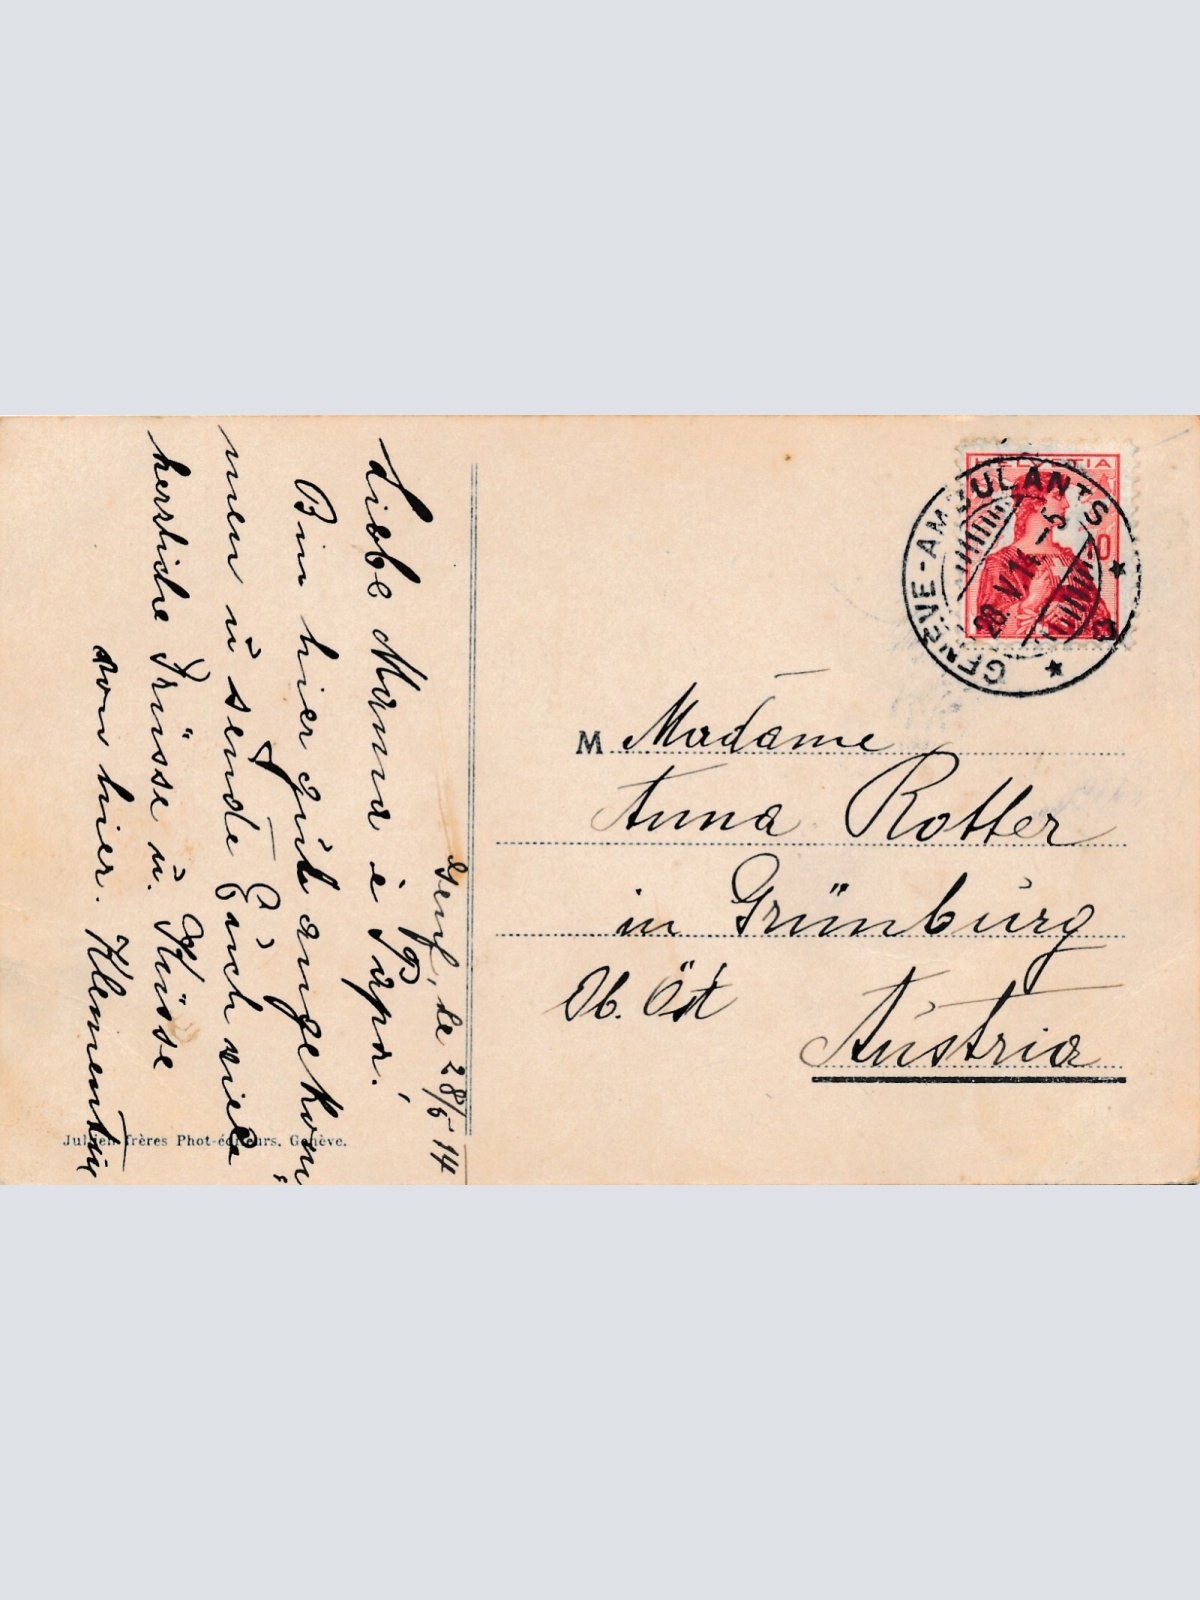 Genf, le 28/5 14
Liebe Mama e Papa!
Bin hier gut angekom
men u sende Euch viele
herzliche Grüsse u. Küsse
von hier. Klementin
HELVETIA
10
GENÈVE-AMBULANTS
28.V.14.-5
M Madame
Anna Rotter
in Grünburg
Ob. Öst
Austria
Jullien frères Phot-éditeurs, Genève.